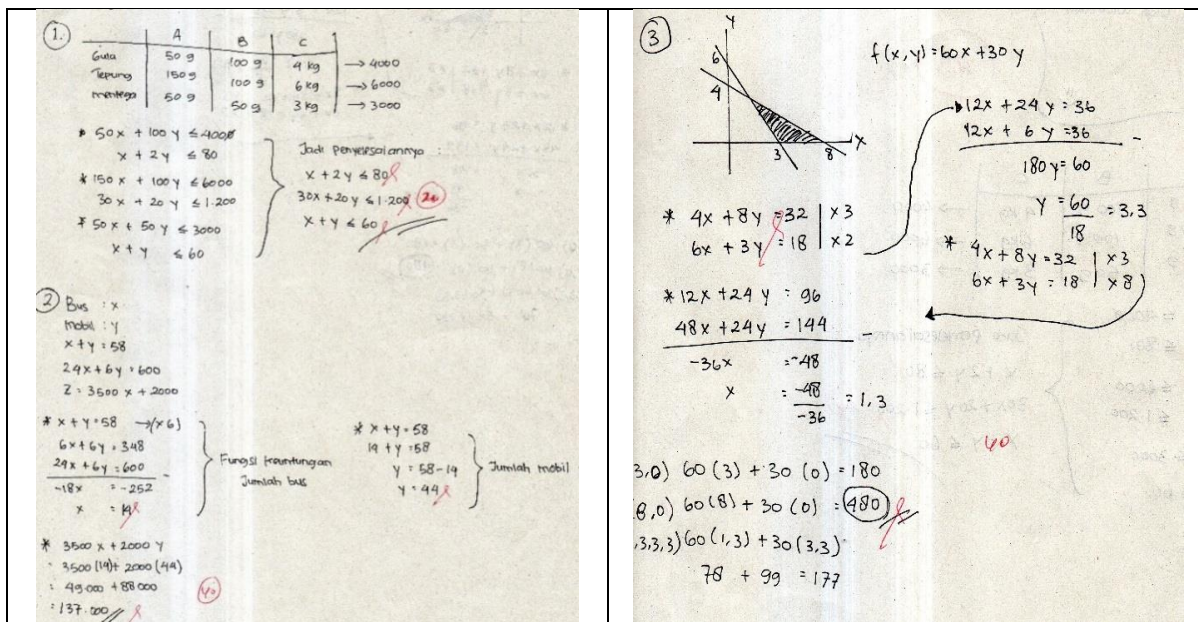 1.
A B C
Gula 50 g 100 g 4 kg → 4000
Tepung 150 g 100 g 6 kg → 6000
mentega 50 g 50 g 3 kg → 3000
* 50x + 100y ≤ 4000
x + 2y ≤ 80
* 150x + 100y ≤ 6000
30x + 20y ≤ 1.200
* 50x + 50y ≤ 3000
x + y ≤ 60
Jadi penyelesaiannya
x + 2y ≤ 80
30x + 20y ≤ 1.200
x + y ≤ 60
20
2 Bus : x
Mobil : y
x + y = 58
24x + 6y = 600
Z = 3500x + 2000
* x + y = 58 → (x 6)
6x + 6y = 348
24x + 6y = 600 -
-18x = -252
x = 14
Fungsi keuntungan
Jumlah bus
* x + y = 58
14 + y = 58
y = 58 - 14
y = 44
Jumlah mobil
* 3500x + 2000y
= 3500(14) + 2000(44)
= 49.000 + 88000
= 137.000
40
3
Y
6
4
3 8 X
f(x,y) = 60x + 30y
* 4x + 8y = 32 | x3
6x + 3y = 18 | x2
12x + 24y = 36
12x + 6y = 36 -
180y = 60
y = 60/18 = 3,3
* 4x + 8y = 32 | x3
6x + 3y = 18 | x8
* 12x + 24y = 96
48x + 24y = 144 -
-36x = -48
x = -48/-36 = 1,3
40
3,0) 60(3) + 30(0) = 180
(8,0) 60(8) + 30(0) = 480
,3,3,3) 60(1,3) + 30(3,3)
78 + 99 = 177